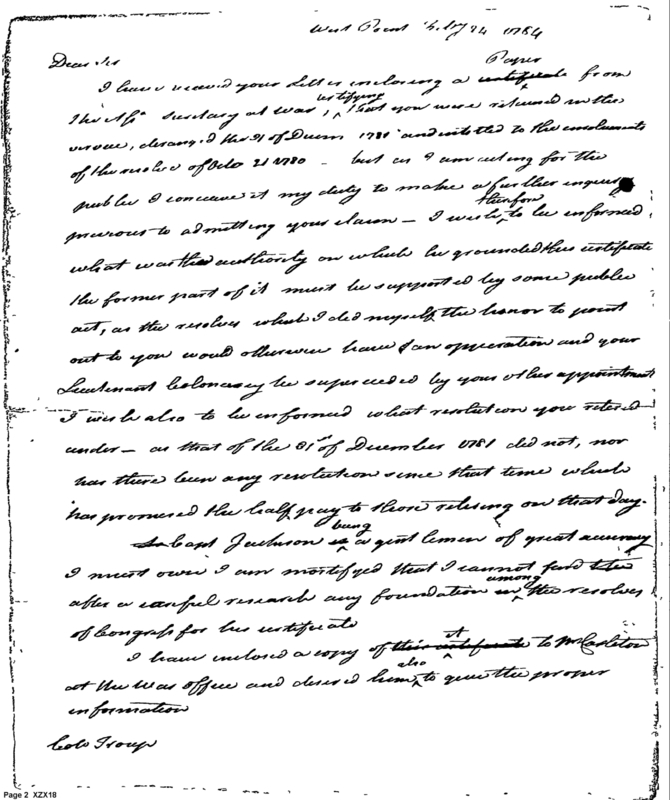 West Point Feby 24 1784
Dear Sir
Paper
I have received your Letter inclosing a certificate from
certifying
the Asst secretary at war, that you were returned in the
service, deranged the 31 of Decem 1781 and intitled to the emoluments
of the resolve of Octo 21 1780 - but as I am acting for the
public I conceive it my duty to make a further inquiry
therefore
previous to admitting your claim — I wish to be informed
what was the authority on which he grounded this certificate
the former part of it must be supported by some public
act, as the resolves which I did myself the honor to point
out to you would otherwise have an opperation and your
Lieutenant Colonelcy be superceeded by your other appointment
I wish also to be informed what resolution you retired
under — as that of the 31st of December 1781 did not, nor
has there been any resolution since that time which
has promised the half pay to those retiring on that day.
being
Capt Jackson is a gentlemen of great accuracy
I must own I am mortifyed that I cannot find
among
after a careful research any foundation in the resolves
of Congress for his certificate
it
I have inclosed a copy of this certificate to Mr Carleton
also
at the War office and desired him to give the proper
information
Colo Troup
Page 2 XZX18